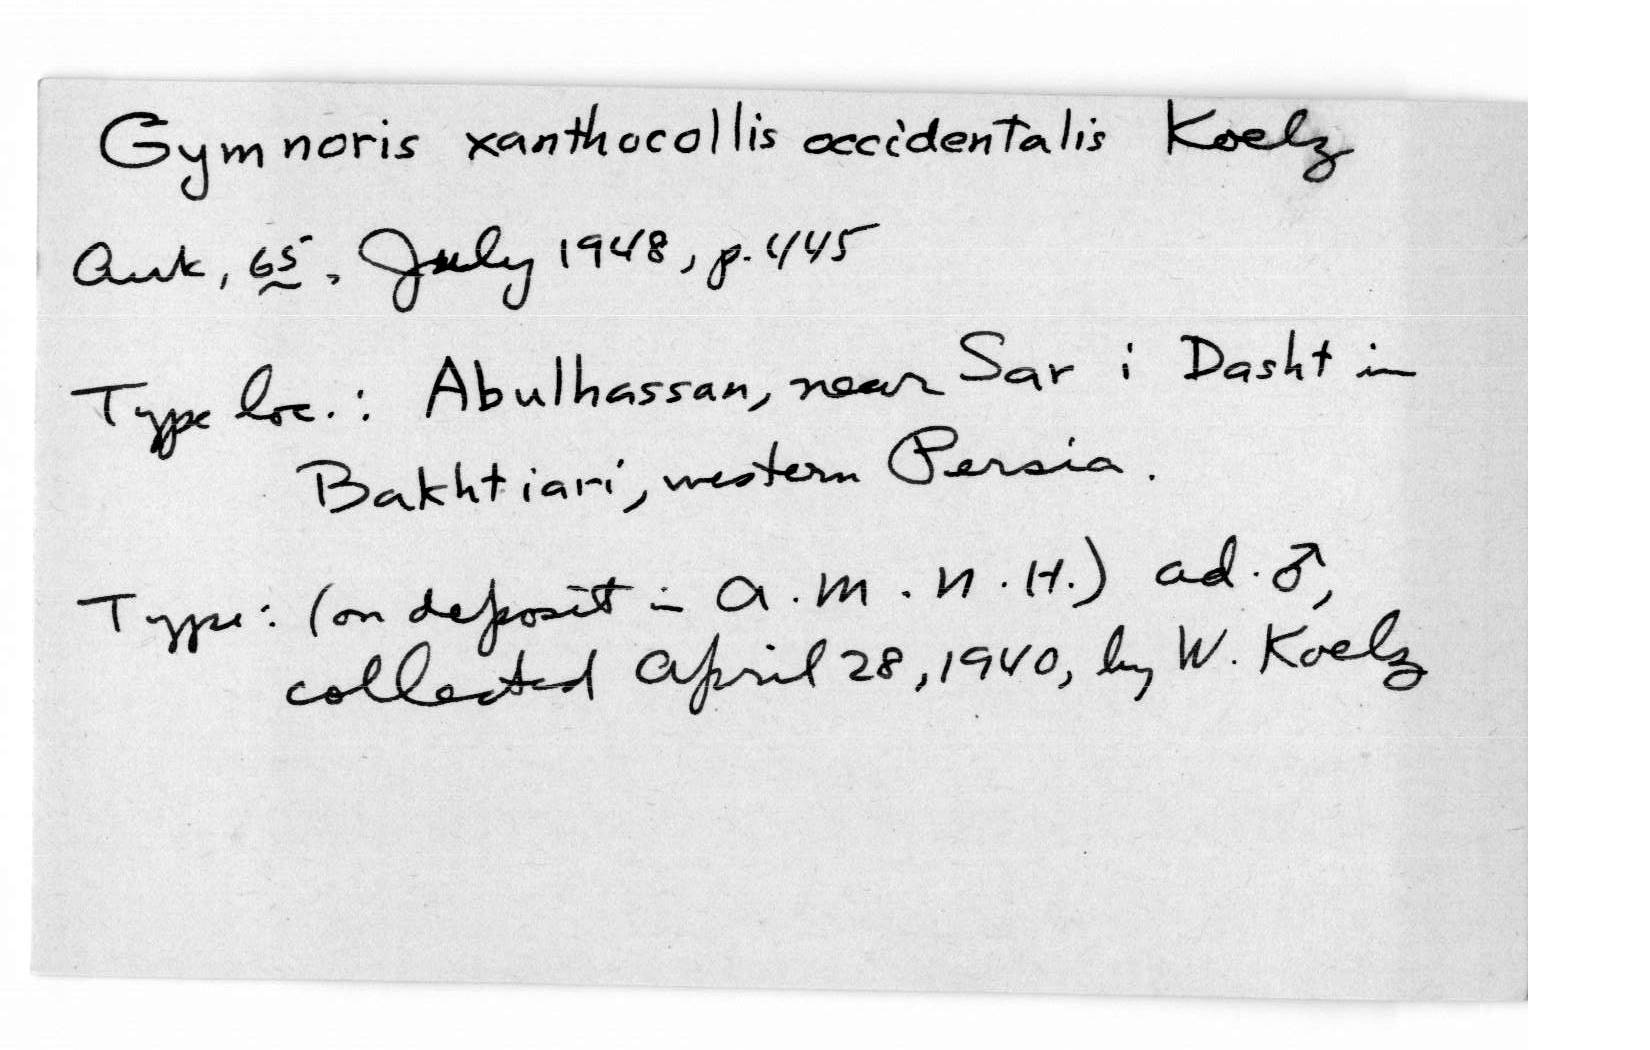 Gymnoris xanthocollis occidentalis Koelz
Auk, 65, July 1948, p. 445
Type loc.: Abulhassan, near Sar i Dasht in
Bakhtiari, western Persia.
Type: (on deposit in A.M.N.H.) ad. ♂,
collected April 28, 1940, by W. Koelz